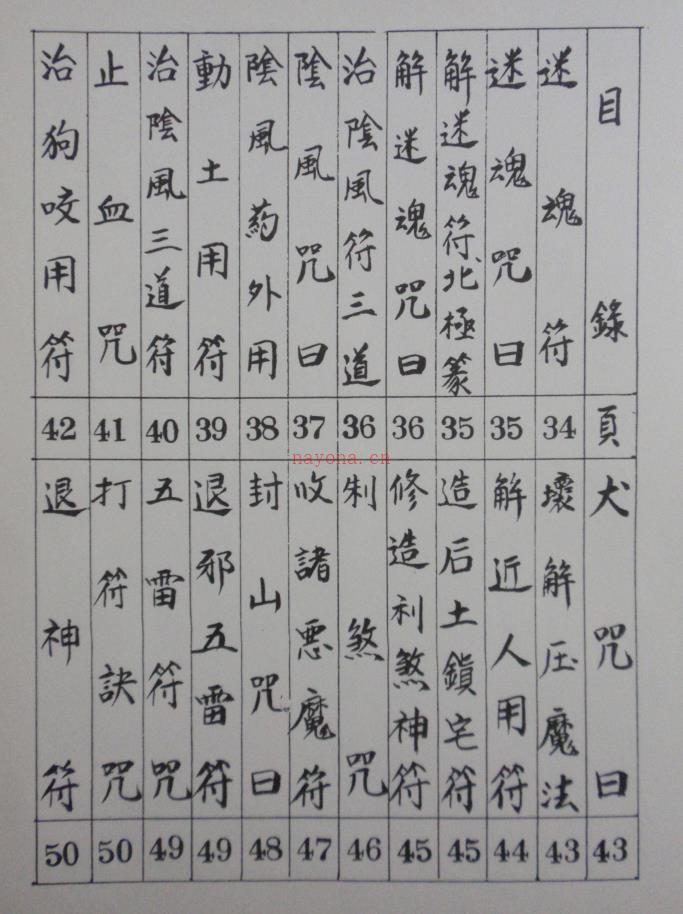 目錄 頁
迷魂符 34
迷魂咒曰 35
解迷魂符、北極篆 35
解迷魂咒曰 36
治陰風符三道 36
陰風咒曰 37
陰風葯外用 38
動土用符 39
治陰風三道符 40
止血咒 41
治狗咬用符 42
犬咒曰 43
壞解压魔法 43
解近人用符 44
造后土鎖宅符 45
修造利煞神符 45
制煞咒 46
收諸惡魔符 47
封山咒曰 48
退邪五雷符 49
五雷符咒 49
打符訣咒 50
退神符 50
nayona.cn